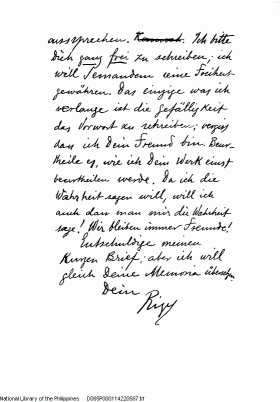 aussprechen. Ich bitte
Dich ganz frei zu schreiben; ich
will Jemandem seine Freiheit
gewähren. Das einzige was ich
verlange ist die gefälligkeit
das Vorwort zu schreiben; vergiss
dass ich Dein Freund bin. Beur-
theile es, wie ich Dein Werk einst
beurtheilen werde. Da ich die
Wahrheit sagen will, will ich
auch dass man mir die Wahrheit
sage! Wir bleiben immer Freunde!
Entschuldige meinen
Kurzen Brief; aber ich will
gleich Deine Memoria
Dein
Rizal
National Library of the Philippines